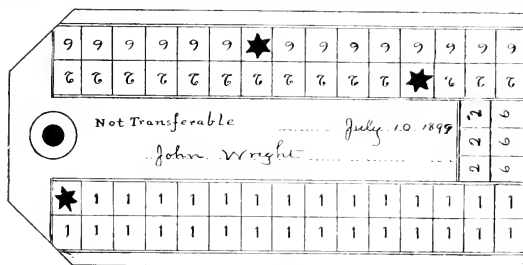 6 6 6 6 6 6 6 6 6 6 6 6 6 6
2 2 2 2 2 2 2 2 2 2 2 2 2 2
Not Transferable July 10 1899
John Wright
2 6
2 6
2 6
1 1 1 1 1 1 1 1 1 1 1 1 1 1
1 1 1 1 1 1 1 1 1 1 1 1 1 1 1